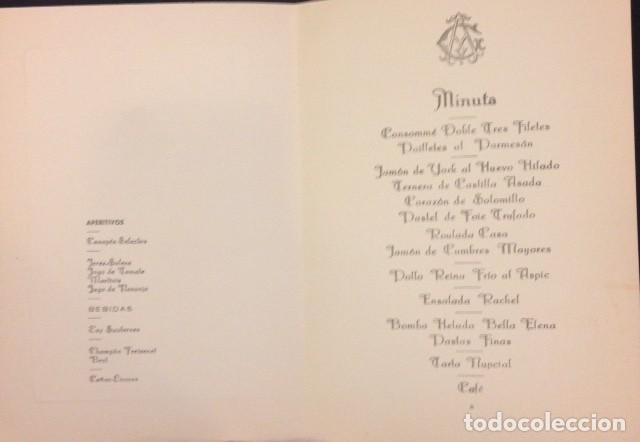 APERITIVOS
Canapés Selectos
Jerez-Solera
Jugo de Tomate
Martinis
Jugo de Naranja
BEBIDAS
Cup Sauternes
Champán Freixenet
Brut
Coñac-Licores
Minuta
Consommé Doble Tres Filetes
Pailletes al Parmesán
Jamón de York al Huevo Hilado
Ternera de Castilla Asada
Corazón de Solomillo
Pastel de Foie Trufado
Roulada Casa
Jamón de Cumbres Mayores
Pollo Reina Frío al Aspic
Ensalada Rachel
Bomba Helada Bella Elena
Pastas Finas
Tarta Nupcial
Café
todocoleccion.net